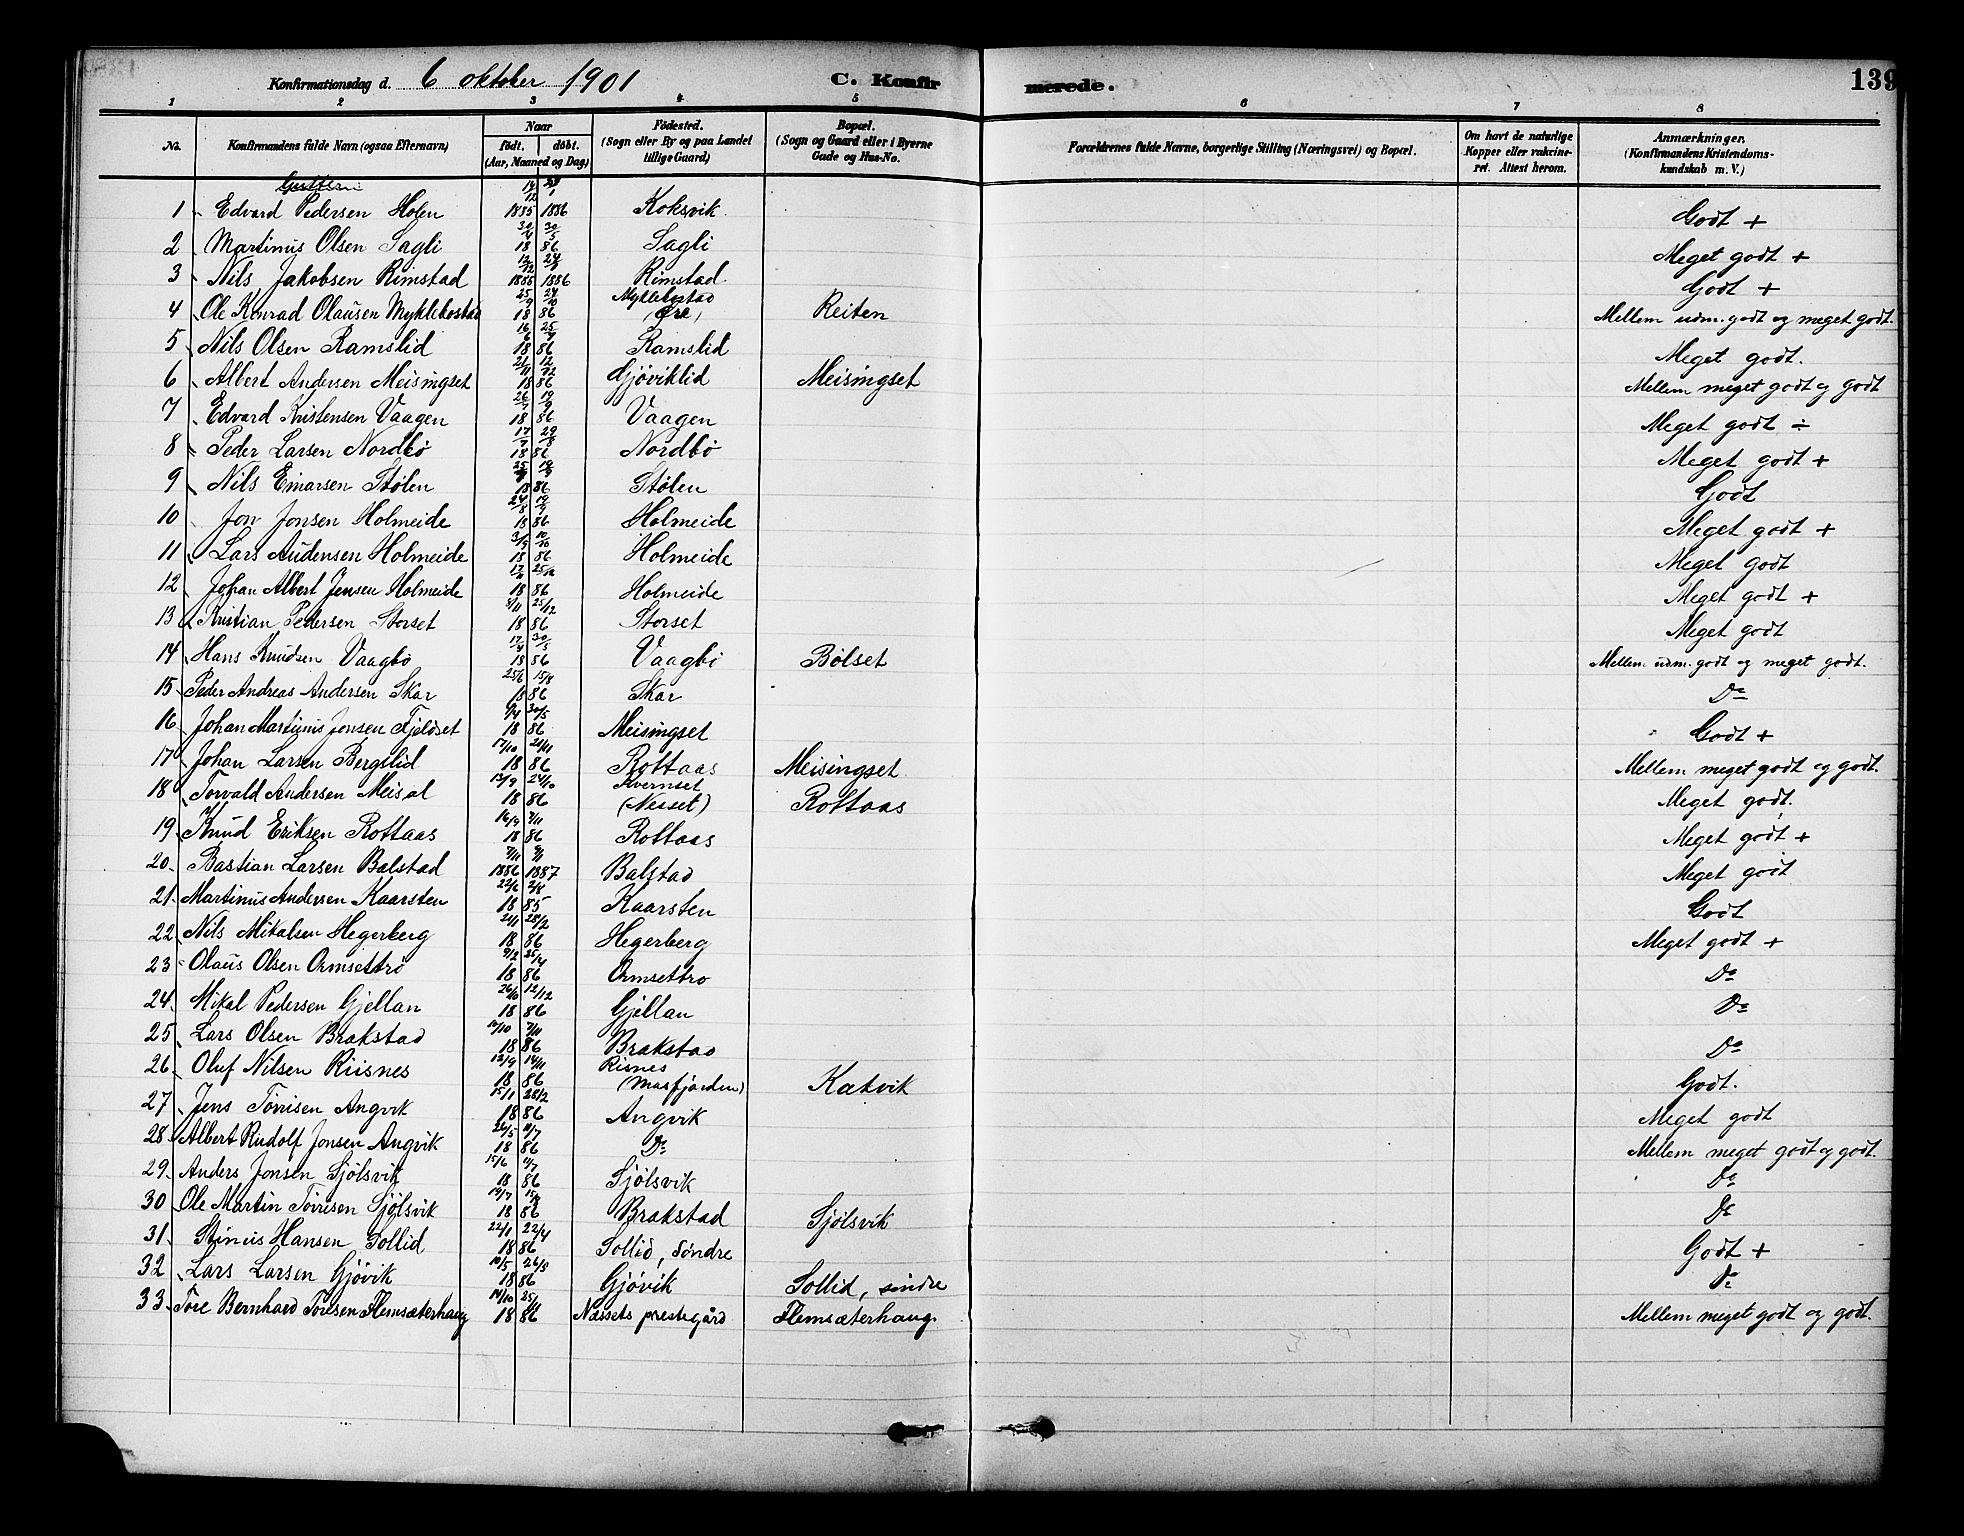 Konfirmationsdag d. 6 oktober 1901 C. Konfirmerede. 139
1 2 3 4 5 6 7 8
No. Konfirmandens fulde Navn (ogsaa Efternavn) Naar født. døbt. (Aar, Maaned og Dag) Fødested. (Sogn eller By og paa Landet tillige Gaard) Bopæl. (Sogn og Gaard eller i Byerne Gade og Hus-No. Forældrenes fulde Navne, borgerlige Stilling (Næringsvei) og Bopæl. Om havt de naturlige Kopper eller vakcineret. Attest herom. Anmærkninger. (Konfirmandens Kristendomskundskab m. V.)
Gutter:
1 Edvard Pedersen Holen 1885 1886 Koksvik Godt +
2 Martinus Olsen Sagli 30/4 30/5 1886 Sagli Meget godt +
3 Nils Jakobsen Rimstad 12/12 1885 1886 Rimstad Godt +
4 Ole Konrad Olausen Myklebostad 25/9 24/10 1886 Myklebostad (Øre) Reiten Mellem udm. godt og meget godt.
5 Nils Olsen Ramslid 1886 Ramslid Meget godt.
6 Albert Andersen Meisingset 21/11 12/12 1886 Gjøviklid Meisingset Mellem meget godt og godt
7 Edvard Kristensen Vaagen 26/7 19/9 1886 Vaagen Meget godt ÷
8 Peder Larsen Nordbø 17/7 29/8 1886 Nordbø Meget godt +
9 Nils Einarsen Stølen 1886 Stølen Godt
10 Jon Jonsen Holmeide 24/8 19/9 1886 Holmeide Meget godt +
11 Lars Audensen Holmeide 10/10 1886 Holmeide Meget godt
12 Johan Albert Jensen Holmeide 25/12 1886 Holmeide Meget godt +
13 Kristian Pedersen Storset 5/11 25/12 1886 Storset Meget godt
14 Hans Knudsen Vaagbø 17/4 30/5 1886 Vaagbø Bølset Mellem udm. godt og meget godt.
15 Peder Andreas Andersen Skar 25/6 15/8 1886 Skar Do
16 Johan Martinus Jensen Fjeldset 30/5 1886 Meisingset Godt +
17 Johan Larsen Bergslid 17/10 21/11 1886 Rottaas Meisingset Mellem meget godt og godt.
18 Torvald Andersen Meisal 13/9 24/10 1886 Kvernset (Nesset) Rottaas Meget godt.
19 Knud Eriksen Rottaas 16/9 7/11 1886 Rottaas Meget godt +
20. Bastian Larsen Balstad 1886 1887 Balstad Meget godt
21. Martinus Andersen Kaarsten 22/6 2/8 1885 Kaarsten Godt
22 Nils Mikalsen Hegerberg 21/1 28/2 1886 Hegerberg Meget godt +
23 Olaus Olsen Ormsettrø 25/4 1886 Ormsettrø Do
24. Mikal Pedersen Gjellan 26/10 12/12 1886 Gjellan Do
25 Lars Olsen Brakstad 7/11 1886 Brakstad Do
26 Oluf Nilsen Riisnes 12/9 14/11 1886 Risnes (Masfjorden) Katvik Godt.
27 Jens Tørrisen Angvik 15/1 28/2 1886 Angvik Meget godt
28. Albert Rudolf Jonsen Angvik 26/5 11/7 1886 Do Mellem meget godt og godt.
29. Anders Jonsen Sjølsvik 15/6 11/7 1886 Sjølsvik Do
30 Ole Martin Tørrisen Sjølsvik 19/7 15/8 1886 Brakstad Sjølsvik Do
31. Stinius Hansen Sollid 22/1 22/4 1886 Sollid, søndre Godt +
32 Lars Larsen Gjøvik 10/5 26/5 1886 Gjøvik Sollid, søndre Do
33. Tore Bernhard Toresen Flemsæterhaug 14/10 25/11 1886 Næssets prestegård Flemsæterhaug. Mellem meget godt og godt.